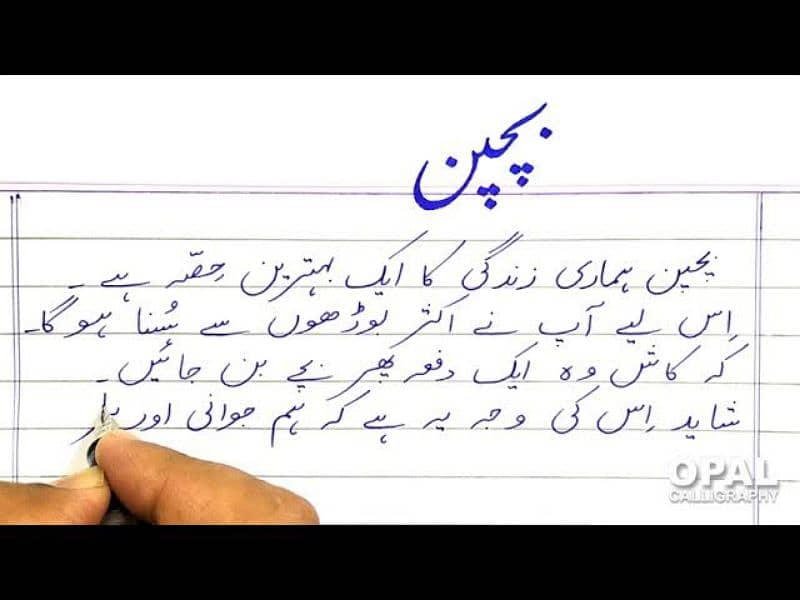 بچپن
بچپن ہماری زندگی کا ایک بہترین حِصّہ ہے ۔
اِس لیے آپ نے اکثر بوڑھوں سے سُنا ہو گا۔
کہ کاش وہ ایک دفعہ پھر بچے بن جائیں۔
شاید اِس کی وجہ یہ ہے کہ ہم جوانی اور
OPAL
CALLIGRAPHY